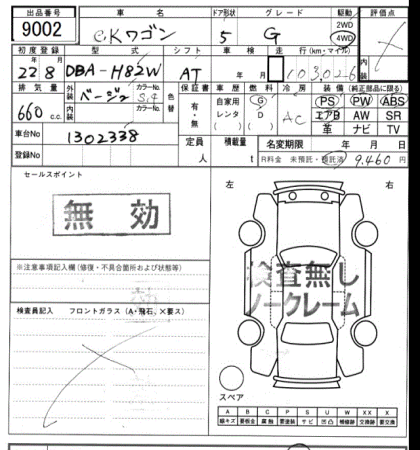 出品番号 車名 ドア形状 グレード 駆動 評価点
9002 eKワゴン 5 G 2WD 4WD
初度登録 型式 シフト 車検 走行(km・マイル) 内装
22年8月 DBA-H82W AT 年 月 103026
排気量 外装 ベージュ カラーNo. 色替 保証書 車歴 燃料 冷房 装備(純正部品に限る)
660c.c. 内装 カラーNo. 有・無 自家用 レンタ G D AC PS PW ABS
エアB AW SR
革 ナビ TV
車台No 1302338 定員 人 積載量 t 名変期限 年 月 日
登録No R料金 未預託・預託済 9,460円
セールスポイント 左 右
無効
検査無し
ノークレーム
※注意事項記入欄(修復・不具合箇所および状態等)
検査員記入 フロントガラス(A・飛石、×要ス)
スペア
A B C P S U W X XX X
線キズ 要板金 腐蝕 要塗装 サビ 凹凸 補修跡 交換跡 要交換